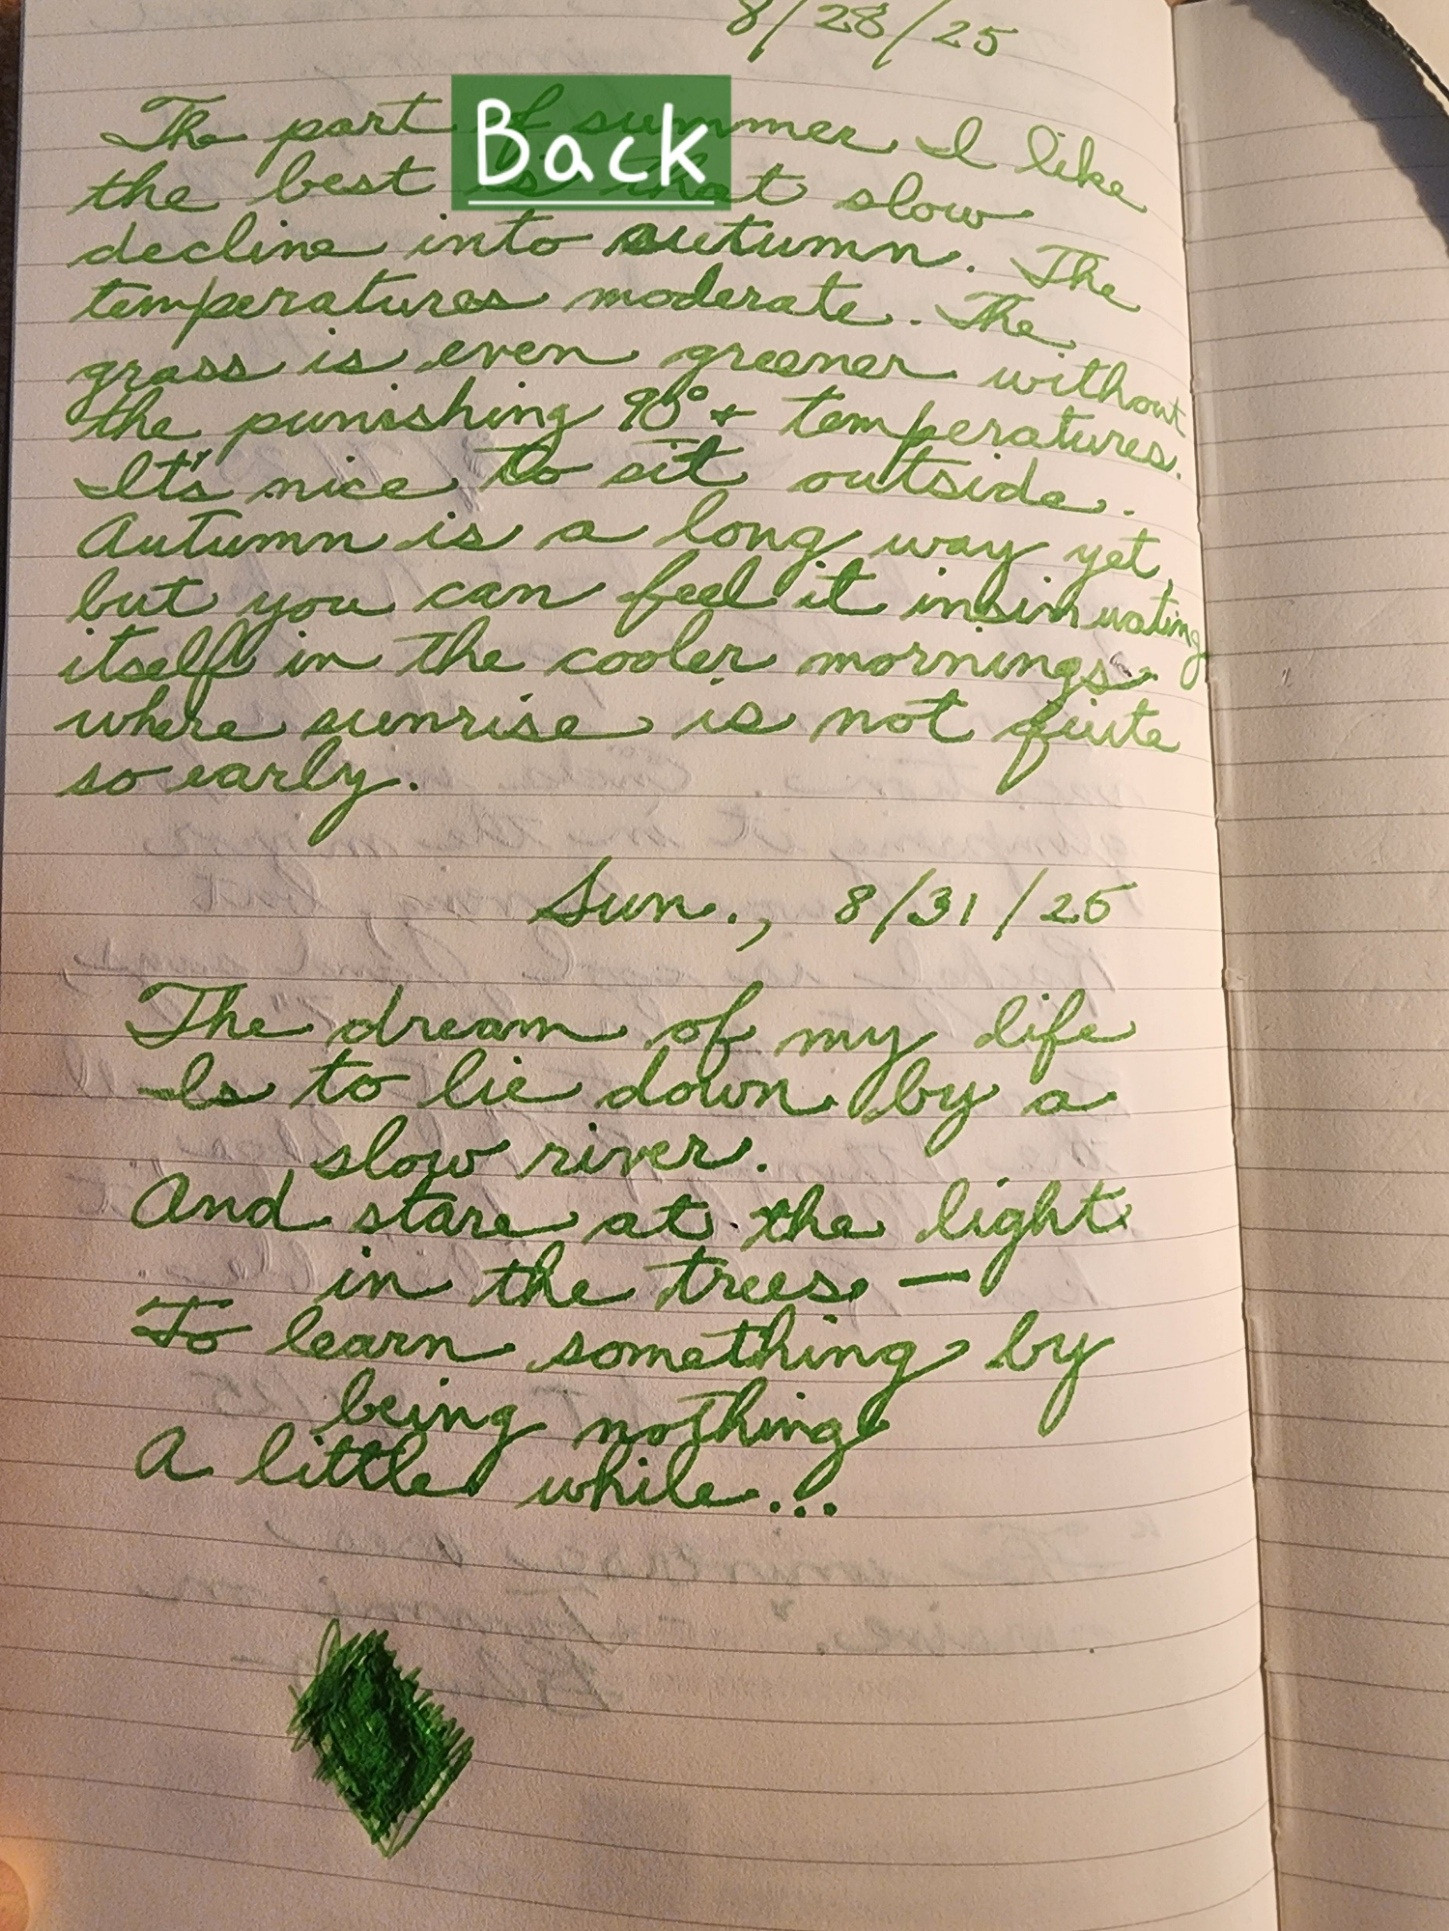 8/28/25
Back
The part of summer I like
the best is that slow
decline into autumn. The
temperatures moderate. The
grass is even greener without
the punishing 90°+ temperatures.
It's nice to sit outside.
Autumn is a long way yet,
but you can feel it insinuating
itself in the cooler mornings
where sunrise is not quite
so early.
Sun., 8/31/25
The dream of my life
Is to lie down by a
slow river.
And stare at the light
in the trees —
To learn something by
being nothing
A little while...